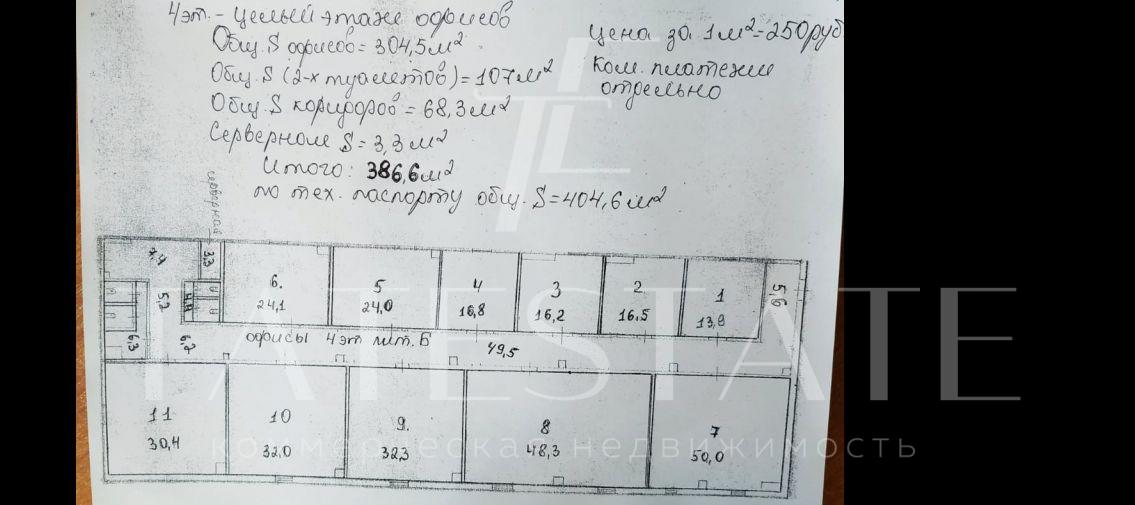 4эт. - целый этаж офисов
Общ. S офисов = 304,5 м²
Общ. S (2-х туалетов) = 10,7 м²
Общ. S коридоров = 68,3 м²
Серверной S = 3,3 м²
Итого: 386,6 м²
по тех. паспорту общ. S = 404,6 м²
цена за 1 м² = 250 руб
Ком. платежи
отдельно
серверная
7,4
3,3
5,2
4,4
6,3
6,2
6.
24,1
5
24,0
4
16,8
3
16,2
2
16,5
1
13,8
5,6
офисы 4эт лит. Б
49,5
11
30,4
10
32,0
9.
32,3
8
48,3
7
50,0
TATESTATE
коммерческая недвижимость